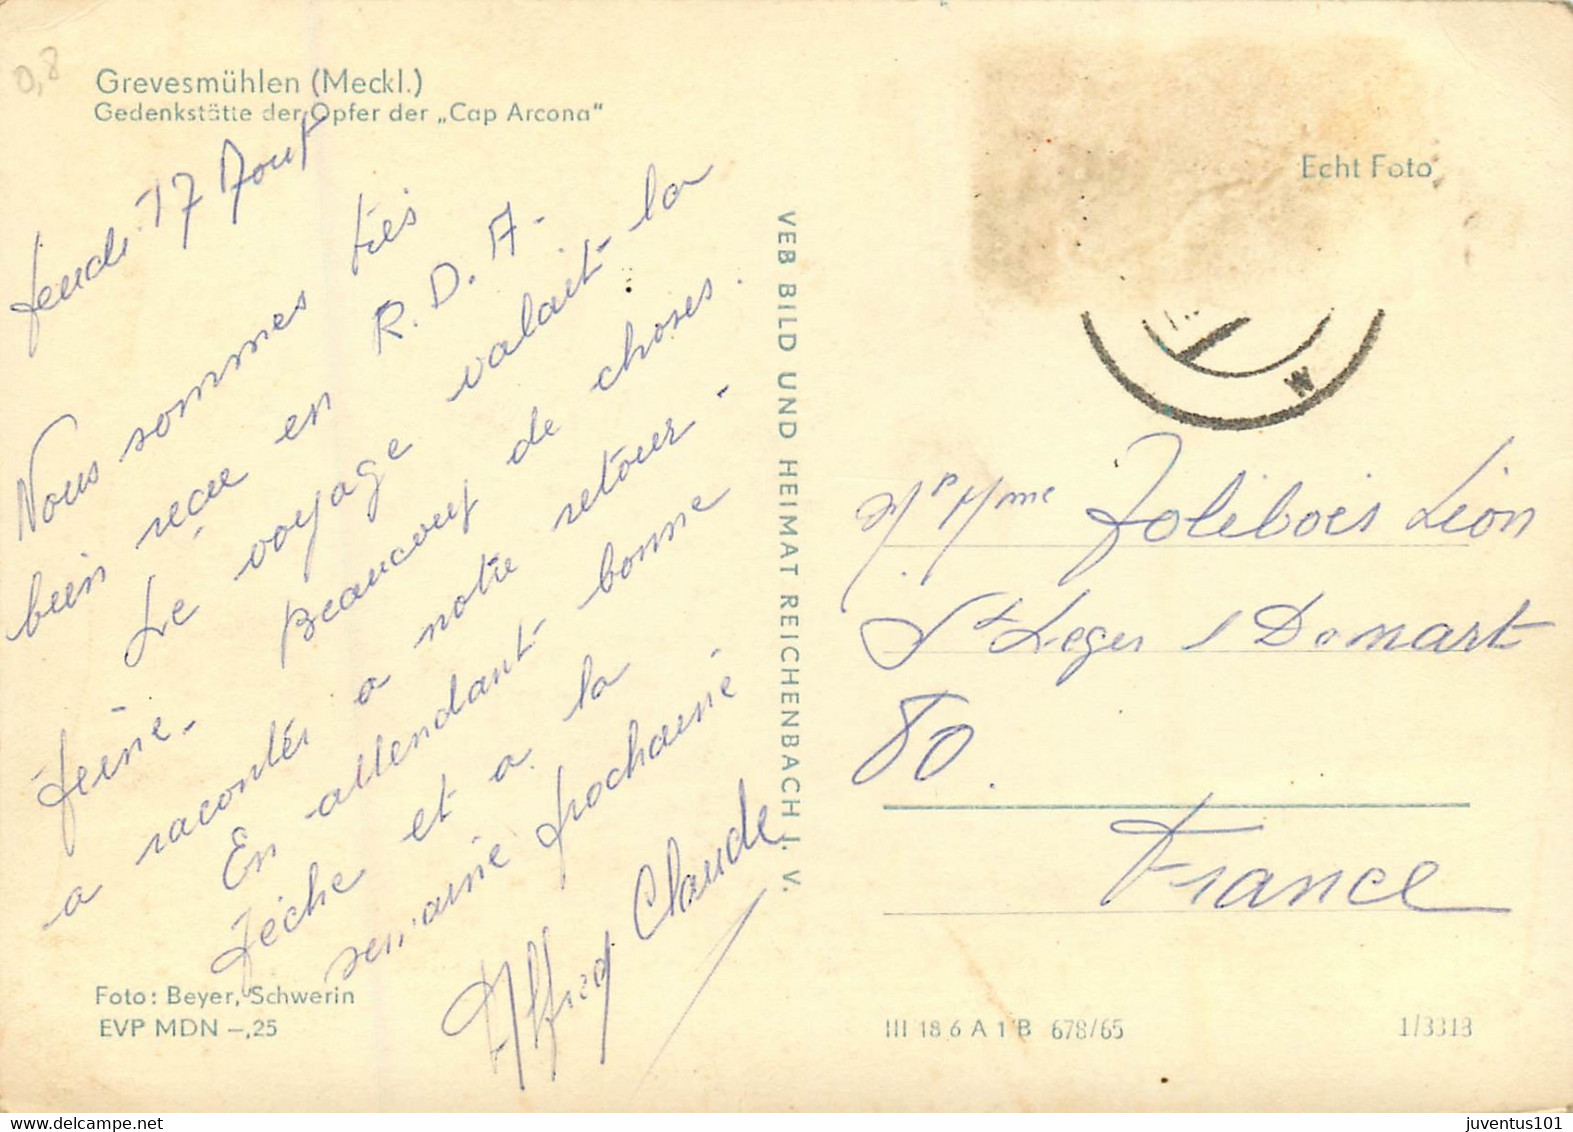 0,8
Grevesmühlen (Meckl.)
Gedenkstätte der Opfer der „Cap Arcona"
Jeudi 17 Aout
Nous sommes très
bien reçue en R.D.A.
Le voyage valait la
peine. Beaucoup de choses.
a raconter a notre retour.
En attendant bonne
pêche et a la
semaine prochaine
Alfred Claude
Foto: Beyer, Schwerin
EVP MDN –,25
VEB BILD UND HEIMAT REICHENBACH I. V.
Echt Foto
w
Mr Mme Jolibois Léon
St Leger s Domart
80.
France
III 18 6 A 1 B 678/65
1/3313
juventus101